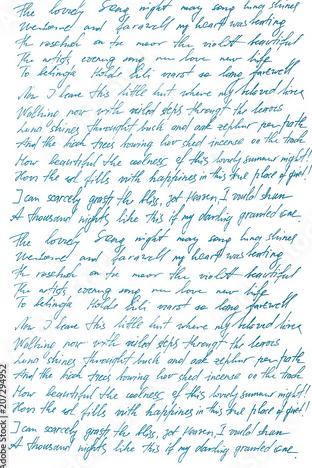 The lovely Song night may song Luny shines
Welcome and farewell my heart was beating
The rosebud on the moor the violet beautiful
The artists evening song new love new life
To belinda Holds Lili warst so long farewell
Now I leave this little hut where my beloved lives
Walking now with veiled steps through the leaves
Luna shines through bush and oak zephyr per path
And the birch trees bowing low shed incense on the track
How beautiful the coolness of this lovely summer night!!
How the soul fills with happiness in this true place of quiet!!
I can scarcely grasp the bliss, yet Heaven, I would shun
A thousand nights like this if my darling granted one.
The lovely Song night may song Luny shines
Welcome and farewell my heart was beating
The rosebud on the moor the violet beautiful
The artists evening song new love new life
To belinda Holds Lili warst so long farewell
Now I leave this little hut where my beloved lives
Walking now with veiled steps through the leaves
Luna shines through bush and oak zephyr per path
And the birch trees bowing low shed incense on the track
How beautiful the coolness of this lovely summer night!!
How the soul fills with happiness in this true place of quiet!!
I can scarcely grasp the bliss, yet Heaven, I would shun
A thousand nights like this if my darling granted one.
Adobe Stock | #207294952